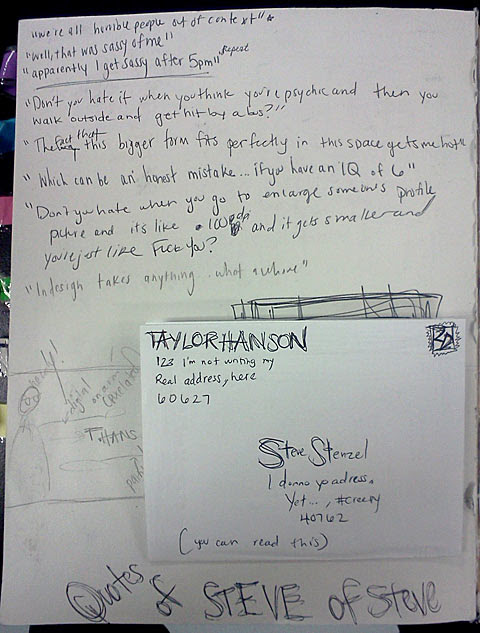 "we're all horrible people out of context"*
"Well, that was sassy of me"
"apparently I get sassy after 5pm" *Repeat
"Don't you hate it when you think you're psychic and then you
walk outside and get hit by a bus?"
"The fact that this bigger form fits perfectly in this space gets me hot"
"Which can be an honest mistake... if you have an IQ of 6"
"Don't you hate when you go to enlarge someone's profile
picture and its like 100 and it gets smaller and
you're just like Fuck You?
"Indesign takes anything... what a whore"
TAYLOR HANSON
123 I'm not writing my
Real address, here
60627
Steve Stenzel
I dunno yo adress.
Yet..., #creepy
40762
(you can read this)
digital
T.HANS
Quotes & STEVE of Steve